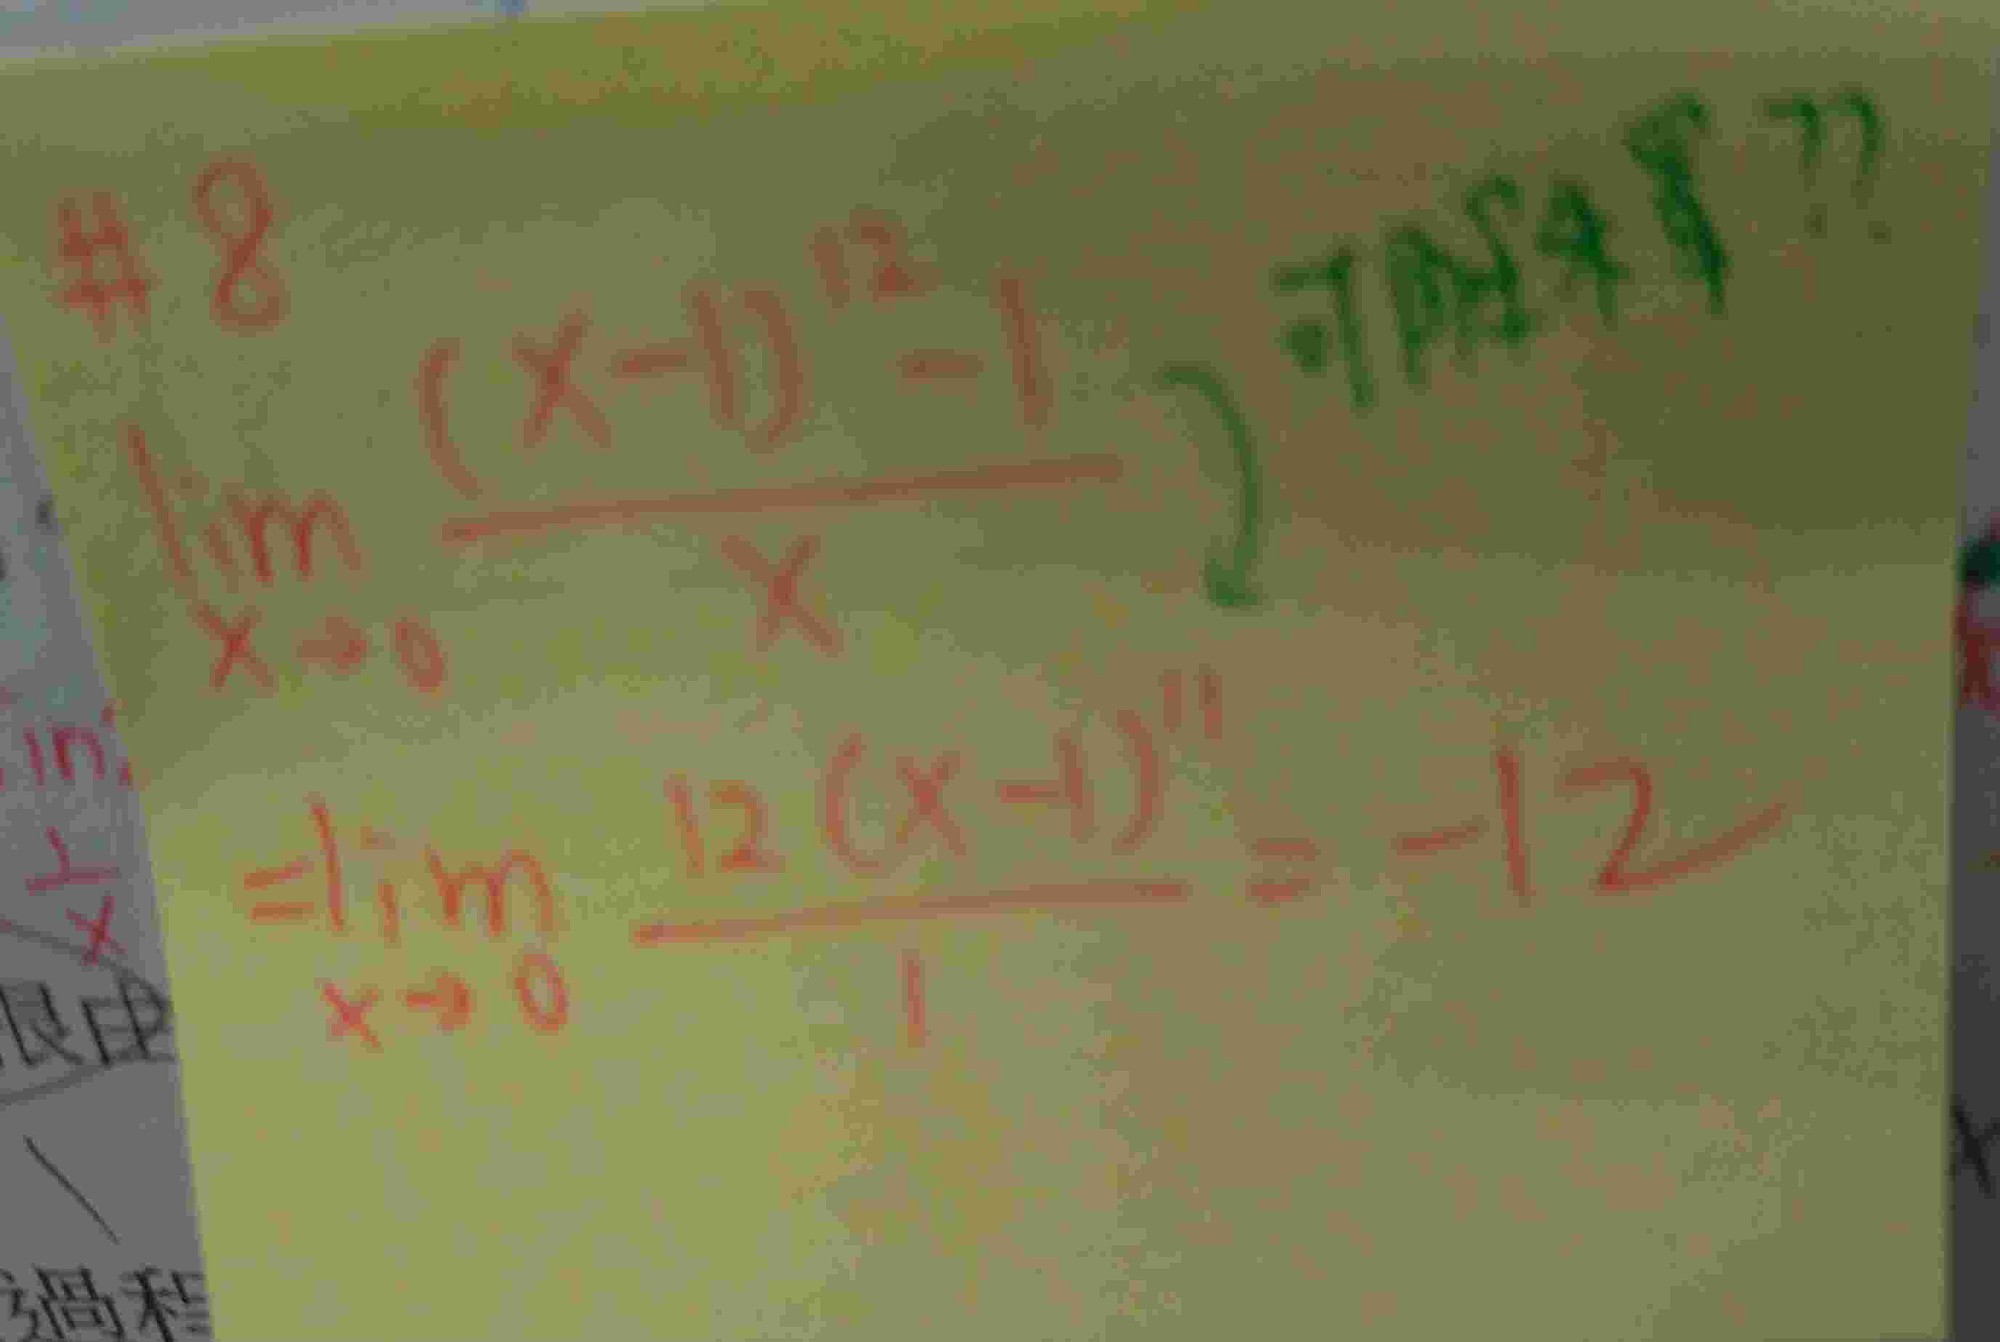 #8
lim x→0 ((x-1)^12 - 1)/x
可以這樣??
= lim x→0 (12(x-1)^11)/1 = -12
in
1/x
限由
過程